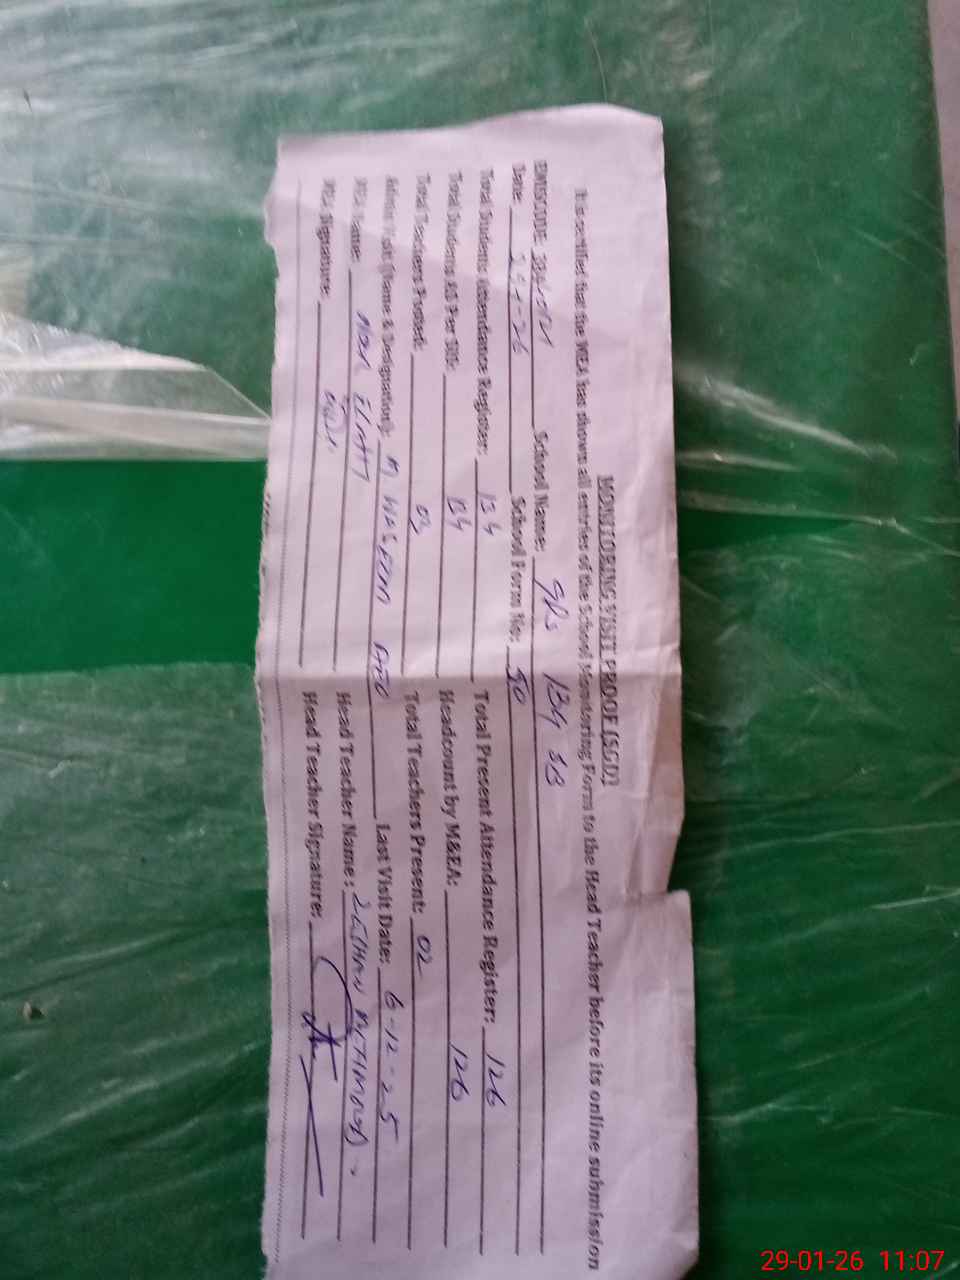 MONITORING VISIT PROOF (SGD)
It is certified that the MEA has shown all entries of the School Monitoring Form to the Head Teacher before its online submission
EMISCODE: School Name: GPS 134 SB
Date: School Form No: 90
Total Students Attendance Register: 134 Total Present Attendance Register: 126
Total Students AS Per SIS: 134 Headcount by M&EA: 126
Total Teachers Posted: 03 Total Teachers Present: 02
Admin Visit (Name & Designation): M. WASEEM AEO Last Visit Date: 6-12-25
MEA Name: Head Teacher Name:
MEA Signature: Head Teacher Signature:
29-01-26 11:07